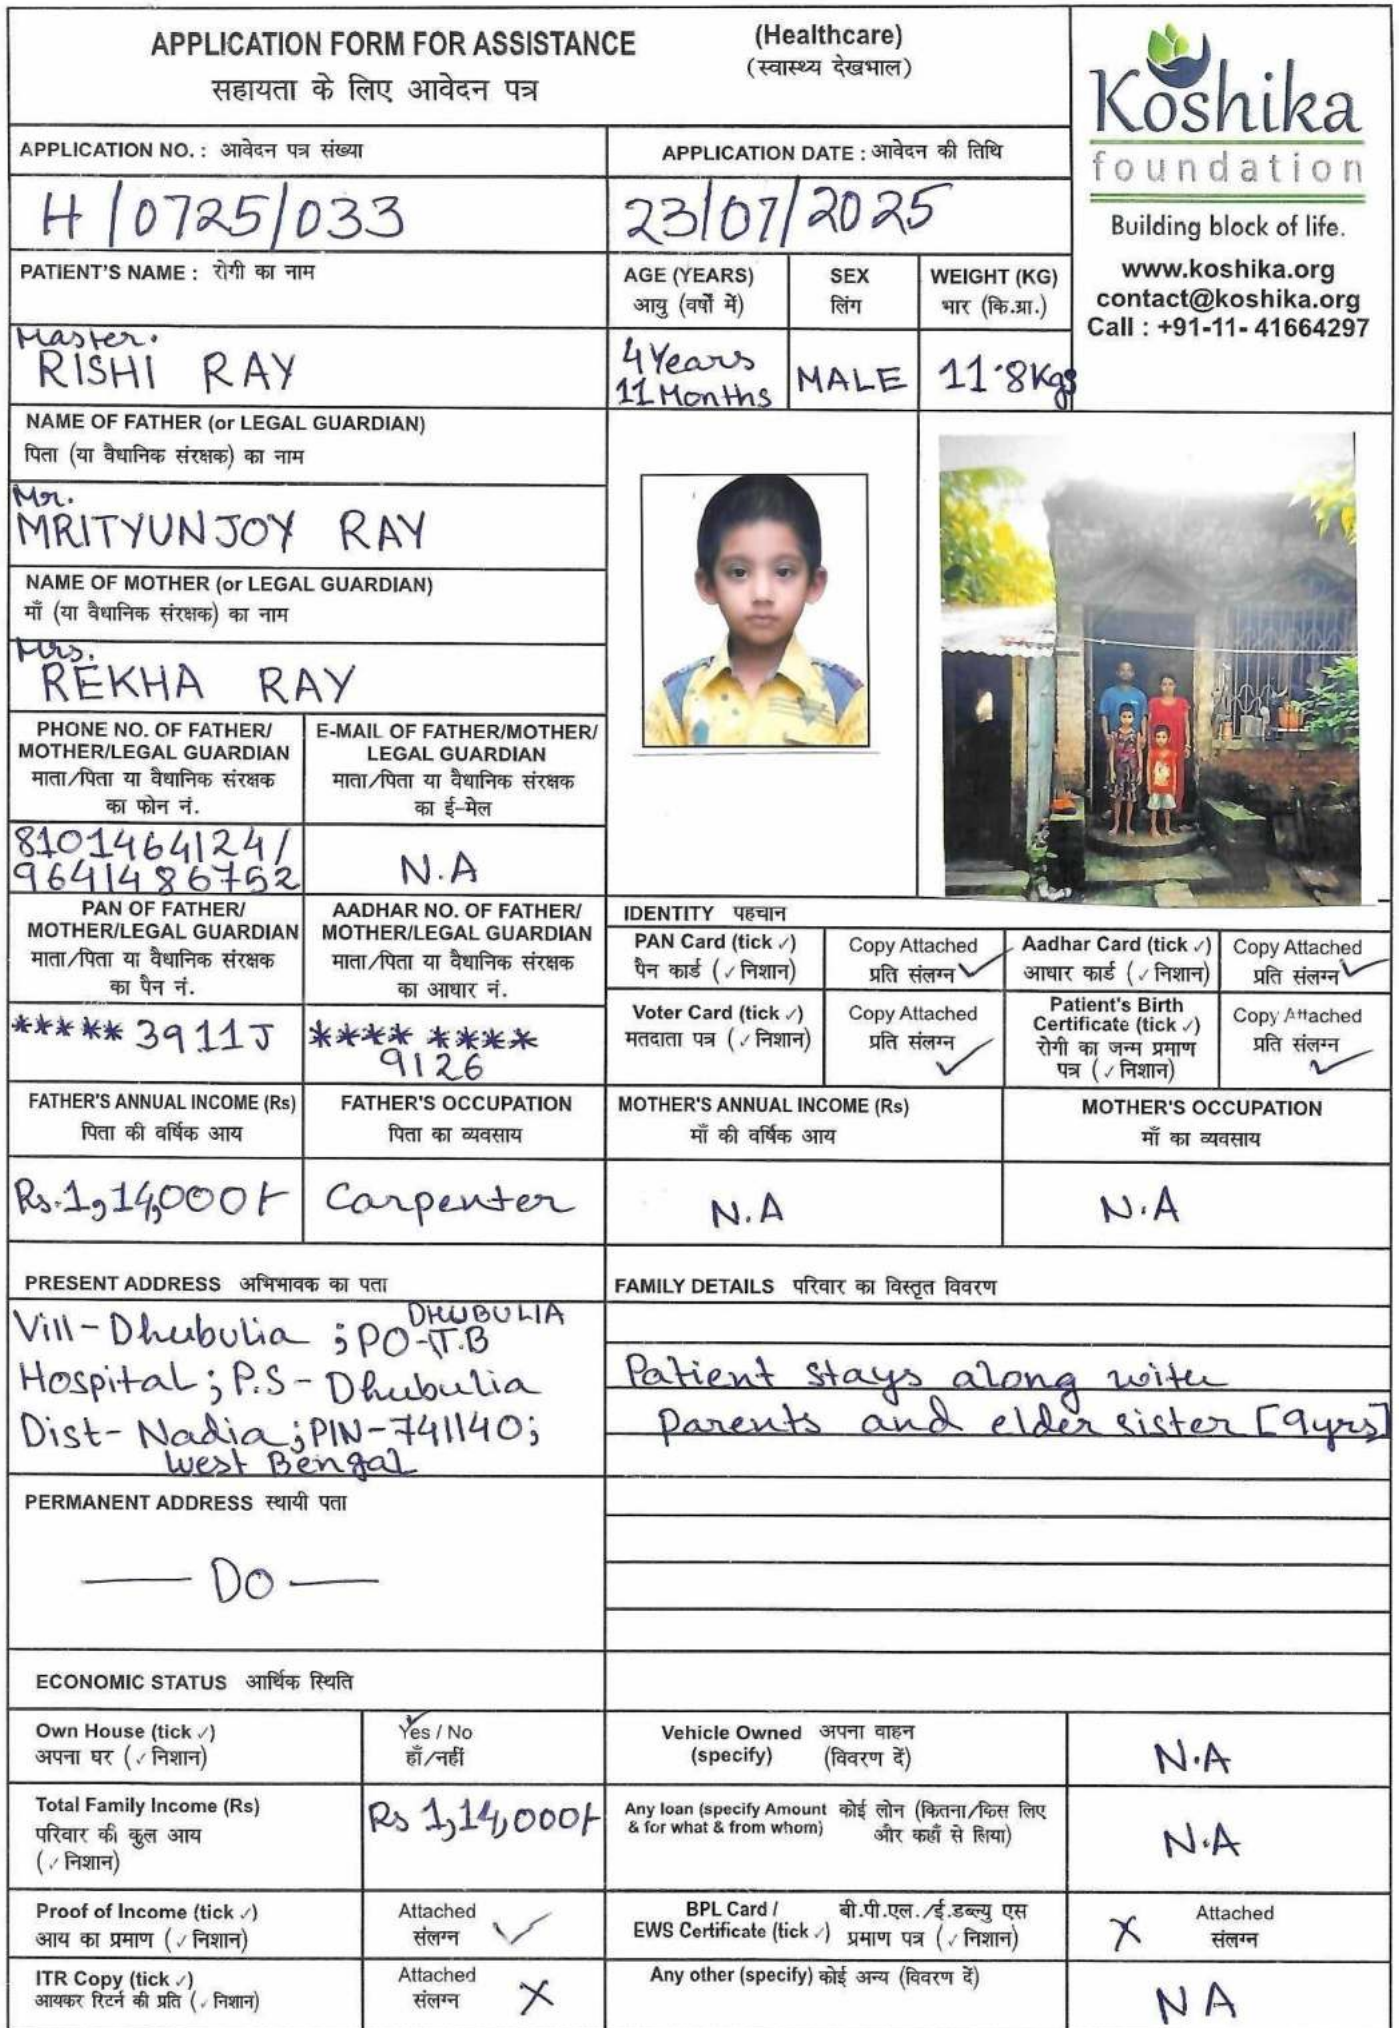 APPLICATION FORM FOR ASSISTANCE (Healthcare)
सहायता के लिए आवेदन पत्र (स्वास्थ्य देखभाल)
Koshika
foundation
Building block of life.
www.koshika.org
contact@koshika.org
Call : +91-11- 41664297
APPLICATION NO. : आवेदन पत्र संख्या
H/0725/033
APPLICATION DATE : आवेदन की तिथि
23/07/2025
PATIENT'S NAME : रोगी का नाम
Master.
RISHI RAY
AGE (YEARS)
आयु (वर्षों में)
4 Years
11 Months
SEX
लिंग
MALE
WEIGHT (KG)
भार (कि.ग्रा.)
11.8Kgs
NAME OF FATHER (or LEGAL GUARDIAN)
पिता (या वैधानिक संरक्षक) का नाम
Mr.
MRITYUNJOY RAY
NAME OF MOTHER (or LEGAL GUARDIAN)
माँ (या वैधानिक संरक्षक) का नाम
Mrs.
REKHA RAY
PHONE NO. OF FATHER/
MOTHER/LEGAL GUARDIAN
माता/पिता या वैधानिक संरक्षक
का फोन नं.
8101464124/
9641486752
E-MAIL OF FATHER/MOTHER/
LEGAL GUARDIAN
माता/पिता या वैधानिक संरक्षक
का ई-मेल
N.A
PAN OF FATHER/
MOTHER/LEGAL GUARDIAN
माता/पिता या वैधानिक संरक्षक
का पैन नं.
***** 3911J
AADHAR NO. OF FATHER/
MOTHER/LEGAL GUARDIAN
माता/पिता या वैधानिक संरक्षक
का आधार नं.
**** ****
9126
IDENTITY पहचान
PAN Card (tick ✓)
पैन कार्ड (✓ निशान)
Copy Attached
प्रति संलग्न ✓
Aadhar Card (tick ✓)
आधार कार्ड (✓ निशान)
Copy Attached
प्रति संलग्न ✓
Voter Card (tick ✓)
मतदाता पत्र (✓ निशान)
Copy Attached
प्रति संलग्न
✓
Patient's Birth
Certificate (tick ✓)
रोगी का जन्म प्रमाण
पत्र (✓ निशान)
Copy Attached
प्रति संलग्न
✓
FATHER'S ANNUAL INCOME (Rs)
पिता की वर्षिक आय
Rs.1,14,000/-
FATHER'S OCCUPATION
पिता का व्यवसाय
Carpenter
MOTHER'S ANNUAL INCOME (Rs)
माँ की वर्षिक आय
N.A
MOTHER'S OCCUPATION
माँ का व्यवसाय
N.A
PRESENT ADDRESS अभिभावक का पता
Vill-Dhubulia ; PO-DHUBULIA T.B
Hospital; P.S- Dhubulia
Dist- Nadia; PIN-741140;
West Bengal
FAMILY DETAILS परिवार का विस्तृत विवरण
Patient stays along with
parents and elder sister [9yrs]
PERMANENT ADDRESS स्थायी पता
— DO —
ECONOMIC STATUS आर्थिक स्थिति
Own House (tick ✓)
अपना घर (✓ निशान)
✓
Yes / No
हाँ/नहीं
Vehicle Owned अपना वाहन
(specify) (विवरण दें)
N.A
Total Family Income (Rs)
परिवार की कुल आय
(✓ निशान)
Rs 1,14,000/-
Any loan (specify Amount कोई लोन (कितना/किस लिए
& for what & from whom) और कहाँ से लिया)
N.A
Proof of Income (tick ✓)
आय का प्रमाण (✓ निशान)
Attached
संलग्न ✓
BPL Card / बी.पी.एल./ई.डब्ल्यु एस
EWS Certificate (tick ✓) प्रमाण पत्र (✓ निशान)
X Attached
संलग्न
ITR Copy (tick ✓)
आयकर रिटर्न की प्रति (✓ निशान)
Attached
संलग्न X
Any other (specify) कोई अन्य (विवरण दें)
NA